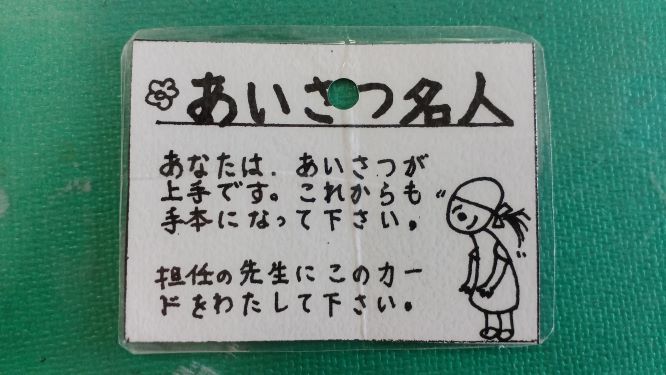 あいさつ名人
あなたは、あいさつが
上手です。これからも
手本になって下さい。
担任の先生にこのカー
ドをわたして下さい。